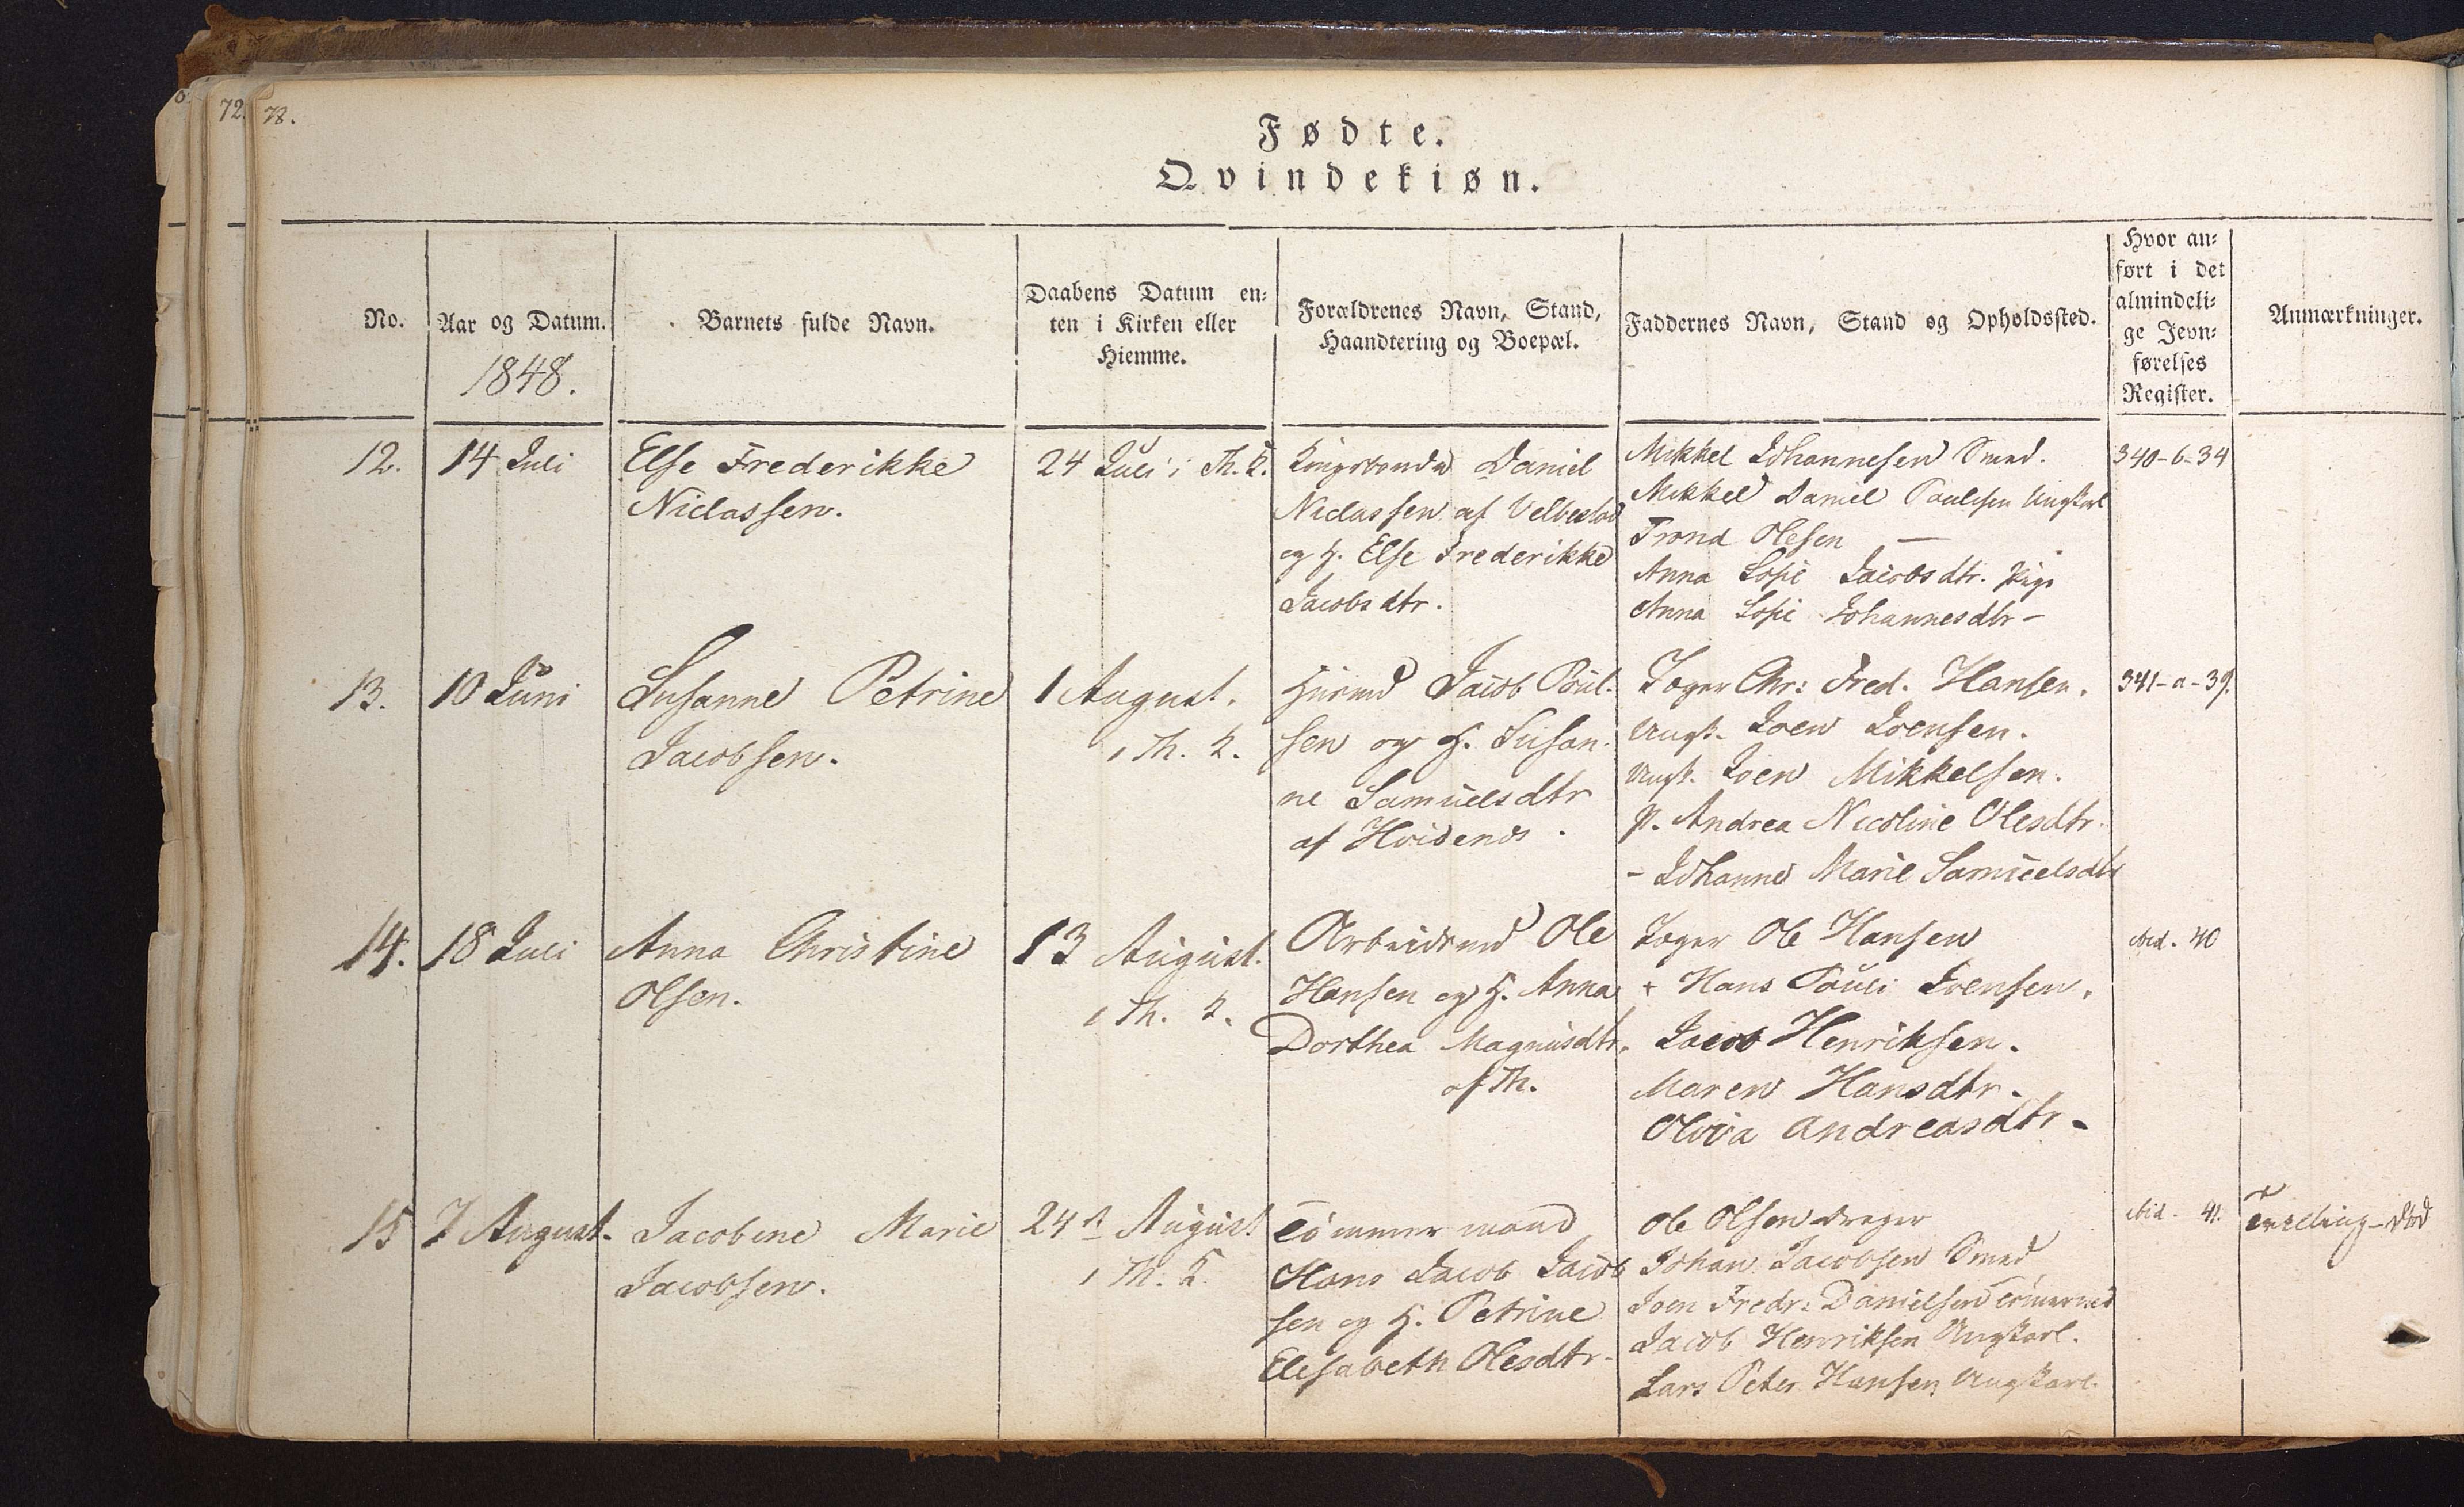 72.
78.
Fødte.
Qvindekiøn.
No.
Aar og Datum.
1848.
Barnets fulde Navn.
Daabens Datum en-
ten i Kirken eller
Hiemme.
Forældrenes Navn, Stand,
Haandtering og Boepæl.
Faddernes Navn, Stand og Opholdssted.
Hvor an-
ført i det
almindeli-
ge Jevn-
førelses
Register.
Anmærkninger.
12.
14 Juli
Else Frederikke
Niclassen.
24 Juli i Th. K.
Kongsbonde Daniel
Niclassen af Velbestad
og H. Else Frederikke
Jacobsdtr.
Mikkel Johannesen Smed.
Mikkel Daniel Poulsen Ungkarl
Trond Olesen —
Anna Sofie Jacobsdtr. Pige
Anna Sofie Johannesdtr —
340-6-34
13.
10 Juni
Susanne Petrine
Jacobsen.
1 August.
i Th. K.
Huusmd Jacob Poul-
sen og H. Susan-
ne Samuelsdtr
af Hvidenæs.
Joger Chr: Fred. Hansen.
Ungk. Joen Joensen.
Ungk. Joen Mikkelsen.
P. Andrea Nicoline Olesdtr.
- Johanne Marie Samuelsdtr
341-a-39.
14.
18 Juli
Anna Christine
Olsen.
13 August.
i Th. K.
Arbeidsmd Ole
Hansen og H. Anna
Dorthea Magnusdtr.
af Th.
Joger Ole Hansen
Hans Pauli Joensen.
Jacob Henriksen.
Maren Hansdtr.
Olivia Andreasdtr.
ibid. 40
15
7 August.
Jacobine Marie
Jacobsen.
24 August
i Th. K.
Tömmermand
Hans Jacob Jacob
sen og H. Petrine
Elisabeth Olesdtr.
Ole Olsen
Johan Jacobsen Smed
Joen Fredr: Danielsen Tömermd
Jacob Henriksen Ungkarl.
Lars Peter Hansen Ungkarl.
ibid. 41.
Tvilling - död